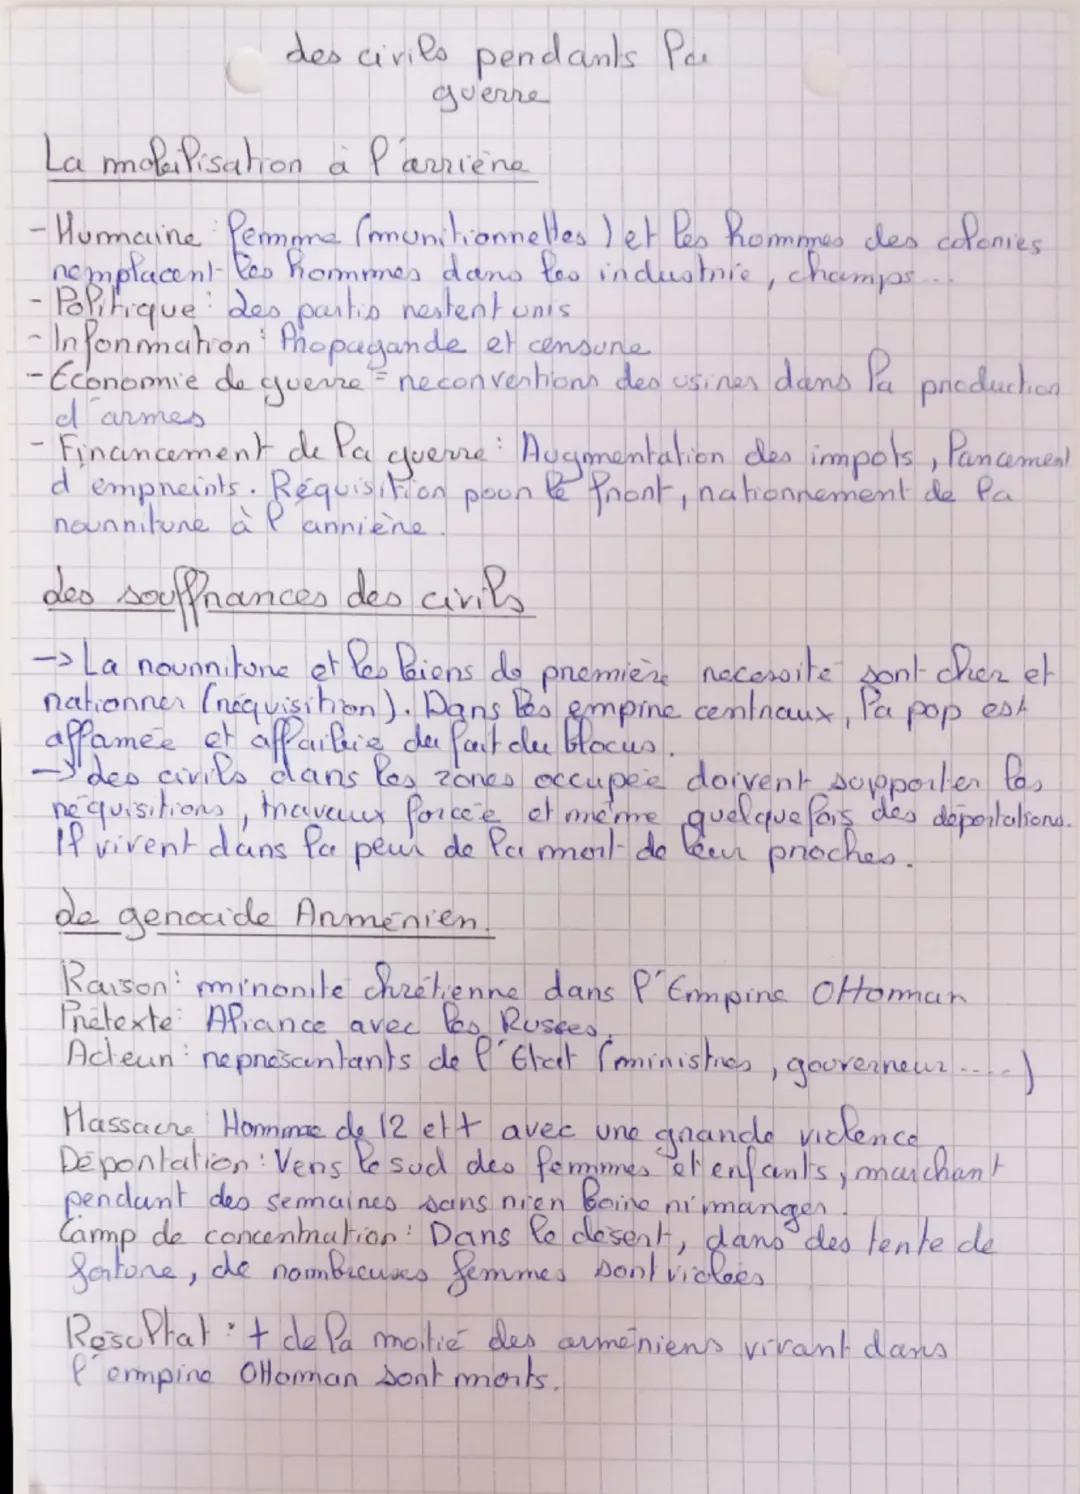 Les civils pendants la
guerre
La mobilisation à l'arrière
- Humaine : femme (munitionnettes) et les hommes des colonies
remplacent les hommes dans les industrie, champs...
- Politique : Les partis restent unis
- Information : Propagande et censure
- Économie de guerre = reconvertions des usines dans la production
d'armes
- Financement de la guerre : Augmentation des impots, lancement
d'empreints. Réquisition pour le front, rationnement de la
nourriture à l'arrière.
Les souffrances des civils
-> La nourriture et les biens de première necessité sont cher et
rationner (réquisition). Dans les empire centraux, la pop est
affamée et affaiblie du fait du blocus.
-> Les civils dans les zones occupée doivent supporter les
réquisitions, travaux forcée et même quelquefois des déportations.
Il vivent dans la peur de la mort de leur proches.
Le genocide Arménien.
Raison : minorité chrétienne dans l'Empire Ottoman
Prétexte : Aliance avec les Russes.
Acteur : représentants de l'Etat (ministres, gouverneur.....)
Massacre : Homme de 12 et + avec une grande violence
Déportation : Vers le sud des femmes et enfants, marchant
pendant des semaines sans rien boire ni manger.
Camp de concentration : Dans le désert, dans des tente de
fortune, de nombreuses femmes sont violées
Résultat : + de la moitié des arméniens vivant dans
l'empire Ottoman sont morts.